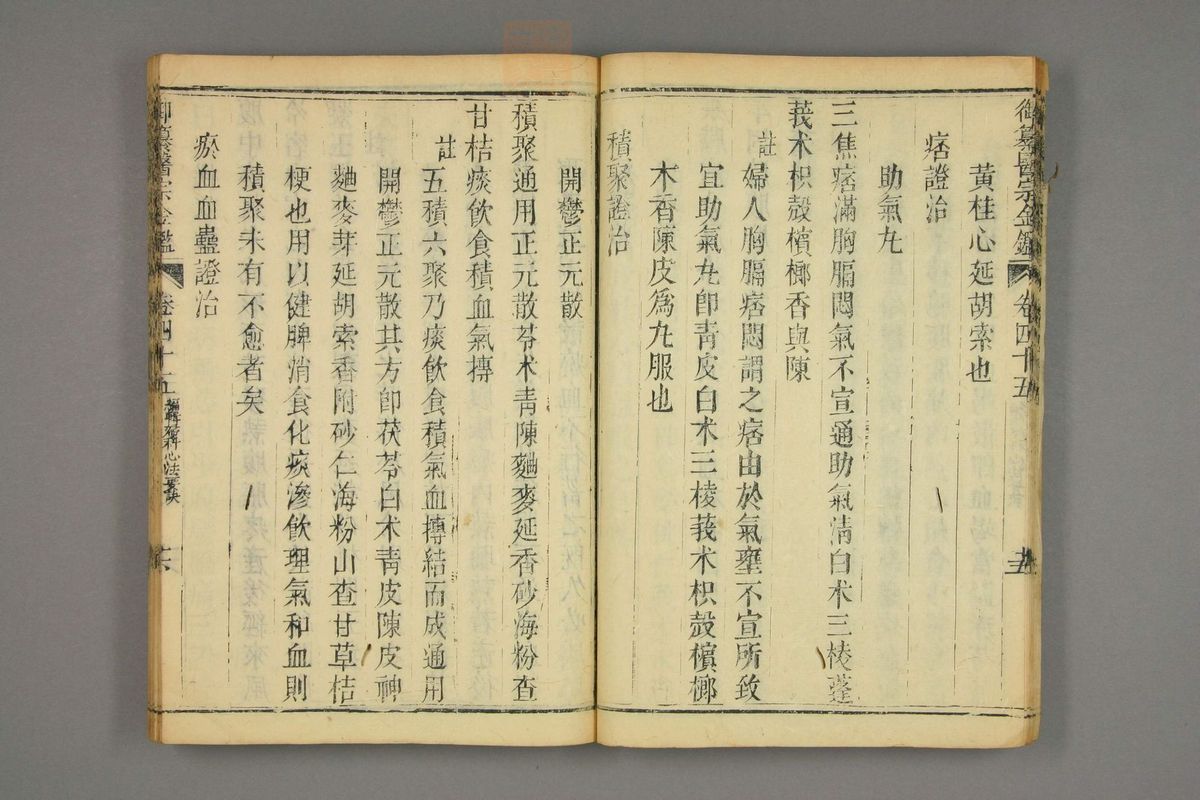 御纂醫宗金鑑 卷四十五
黃桂心延胡索也
痞證治
助氣丸
三焦痞滿胸膈悶氣不宣通助氣淸白朮三棱蓬
莪朮枳殼檳榔香與陳
註婦人胸膈痞悶謂之痞由於氣壅不宣所致
宜助氣丸卽靑皮白朮三棱莪朮枳殼檳榔
木香陳皮爲丸服也
積聚證治
開鬱正元散
積聚通用正元散苓朮靑陳麯麥延香砂海粉查
甘桔痰飮食積血氣摶
註五積六聚乃痰飮食積氣血摶結而成通用
開鬱正元散其方卽茯苓白朮靑皮陳皮神
麯麥芽延胡索香附砂仁海粉山查甘草桔
梗也用以健脾消食化痰滲飮理氣和血則
積聚未有不愈者矣
瘀血血蠱證治
御纂醫宗金鑑 卷四十五 婦科心法要訣